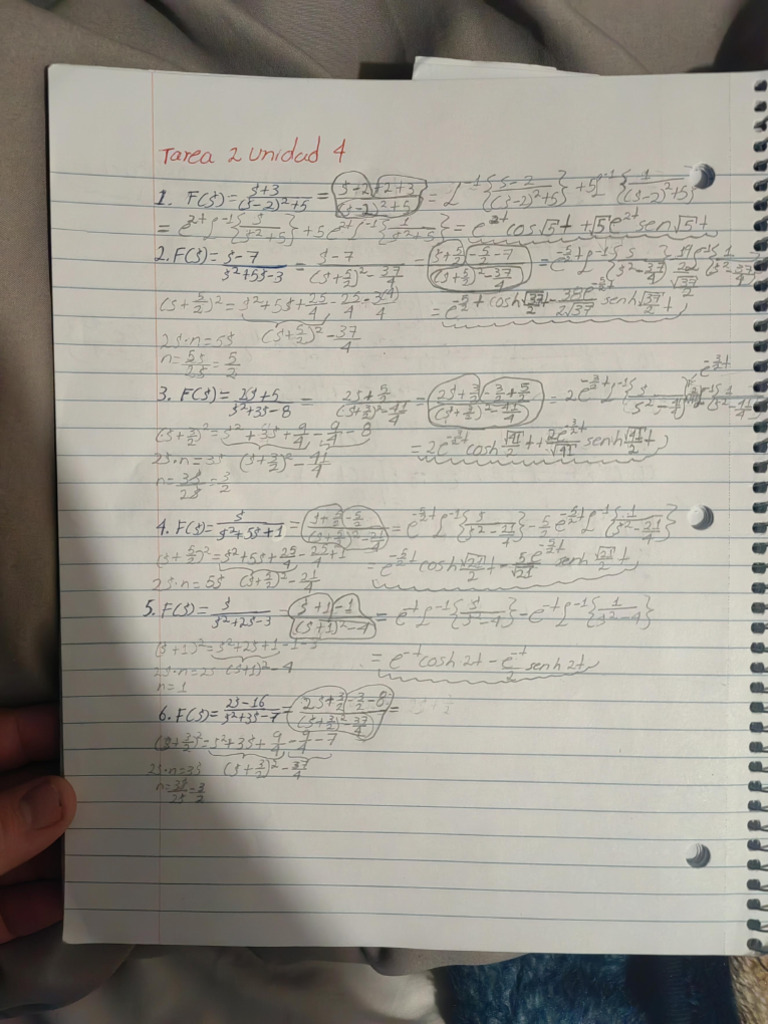 Tarea 2 Unidad 4
1. F(s) = s+3/(s-2)²+5 = s-2+2+3/(s-2)²+5 = L⁻¹{s-2/(s-2)²+5} + 5L⁻¹{1/(s-2)²+5}
= e²ᵗL⁻¹{s/s²+5} + 5e²ᵗL⁻¹{1/s²+5} = e²ᵗcos√5t + √5e²ᵗsen√5t
2. F(s) = s-7/s²+5s-3 = s-7/(s+5/2)²-37/4 = s+5/2-5/2-7/(s+5/2)²-37/4 = e^(-5/2 t)L⁻¹{s/s²-37/4}
(s+5/2)² = s²+5s+25/4-25/4-3 = e^(-5/2 t)cosh√37/2 t senh√37/2 t
(s+5/2)²-37/4
2s·n=5s
n=5s/2s=5/2
3. F(s) = 2s+5/s²+3s-8 = (s+3/2)²-41/4 = 2s+3/2-3/2+5/2/(s+3/2)²-41/4 = 2e^(-3/2 t)L⁻¹
(s+3/2)² = s²+3s+9/4-9/4-8
2s·n=3s (s+3/2)²-41/4 = 2e cosh√41/2 t + senh√41/2 t
n=3s/2s=3/2
4. F(s) = s/s²+5s+1 = s+5/2-5/2/(s+5/2)²-21/4 = e^(-5/2 t)L⁻¹{s/s²-21/4} - 5/2 e^(-5/2 t)L⁻¹{1/s²-21/4}
(s+5/2)² = s²+5s+25/4-25/4+1 = e^(-5/2 t)cosh√21/2 t - 5e^(-5/2 t)/√21 senh√21/2 t
2s·n=5s (s+5/2)²-21/4
5. F(s) = s/s²+2s-3 = s+1-1/(s+1)²-4 = e⁻ᵗL⁻¹{s/s²-4} - e⁻ᵗL⁻¹{1/s²-4}
(s+1)² = s²+2s+1-1-3
2s·n=2s (s+1)²-4 = e⁻ᵗcosh2t - e⁻ᵗ/2 senh2t
n=1
6. F(s) = 2s-16/s²+3s-7 = 2s+3/2-3/2-8/(s+3/2)²-37/4 =
(s+3/2)² = s²+3s+9/4-9/4-7
2s·n=3s (s+3/2)²-37/4
n=3s/2s=3/2